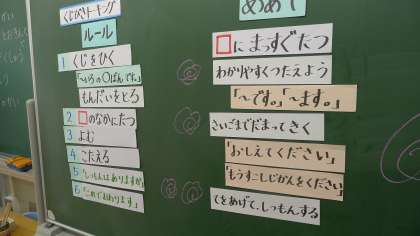 くじびきトーキング
ルール
1 くじをひく
「〜いろの〇ばんです。」
もんだいをとる
2 □のなかにたつ
3 よむ
4 こたえる
5 「しつもんはありますか」
6 「これでおわります」
めあて
□にまっすぐたつ
わかりやすくつたえよう
「〜です。」「〜ます。」
さいごまでだまってきく
「おしえてください」
「もうすこしじかんをください」
てをあげて、しつもんする